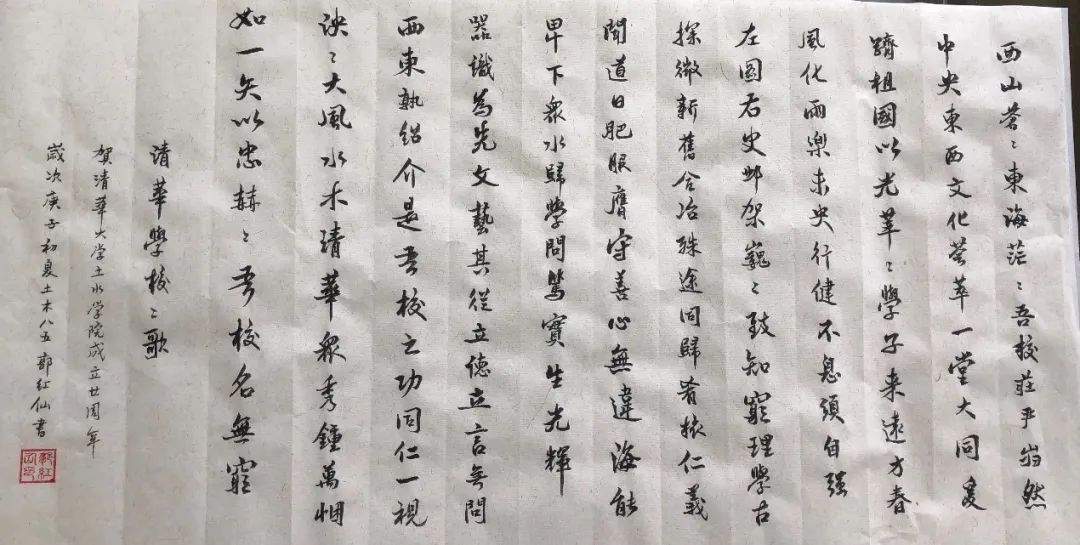 西山蒼〻東海茫〻吾校莊乎巋然
中央東西文化薈萃一堂大同爰
躋祖國以光莘〻學子来遠方春
風化雨樂未央行健不息須自强
左圖右史鄴架巍〻致知窮理學古
探微新舊合冶殊途同歸肴核仁義
聞道日肥服膺守善心無違海能
卑下衆水歸學問篤實生光輝
器識為先文藝其從立德立言無問
西東孰紹介是吾校之功同仁一視
泱〻大風水木清華衆秀鍾萬悃
如一矢以忠赫〻吾校名無窮
清華學校〻歌
賀清華大学土水学院成立廿周年
歲次庚子初夏土木八五郭红仙書